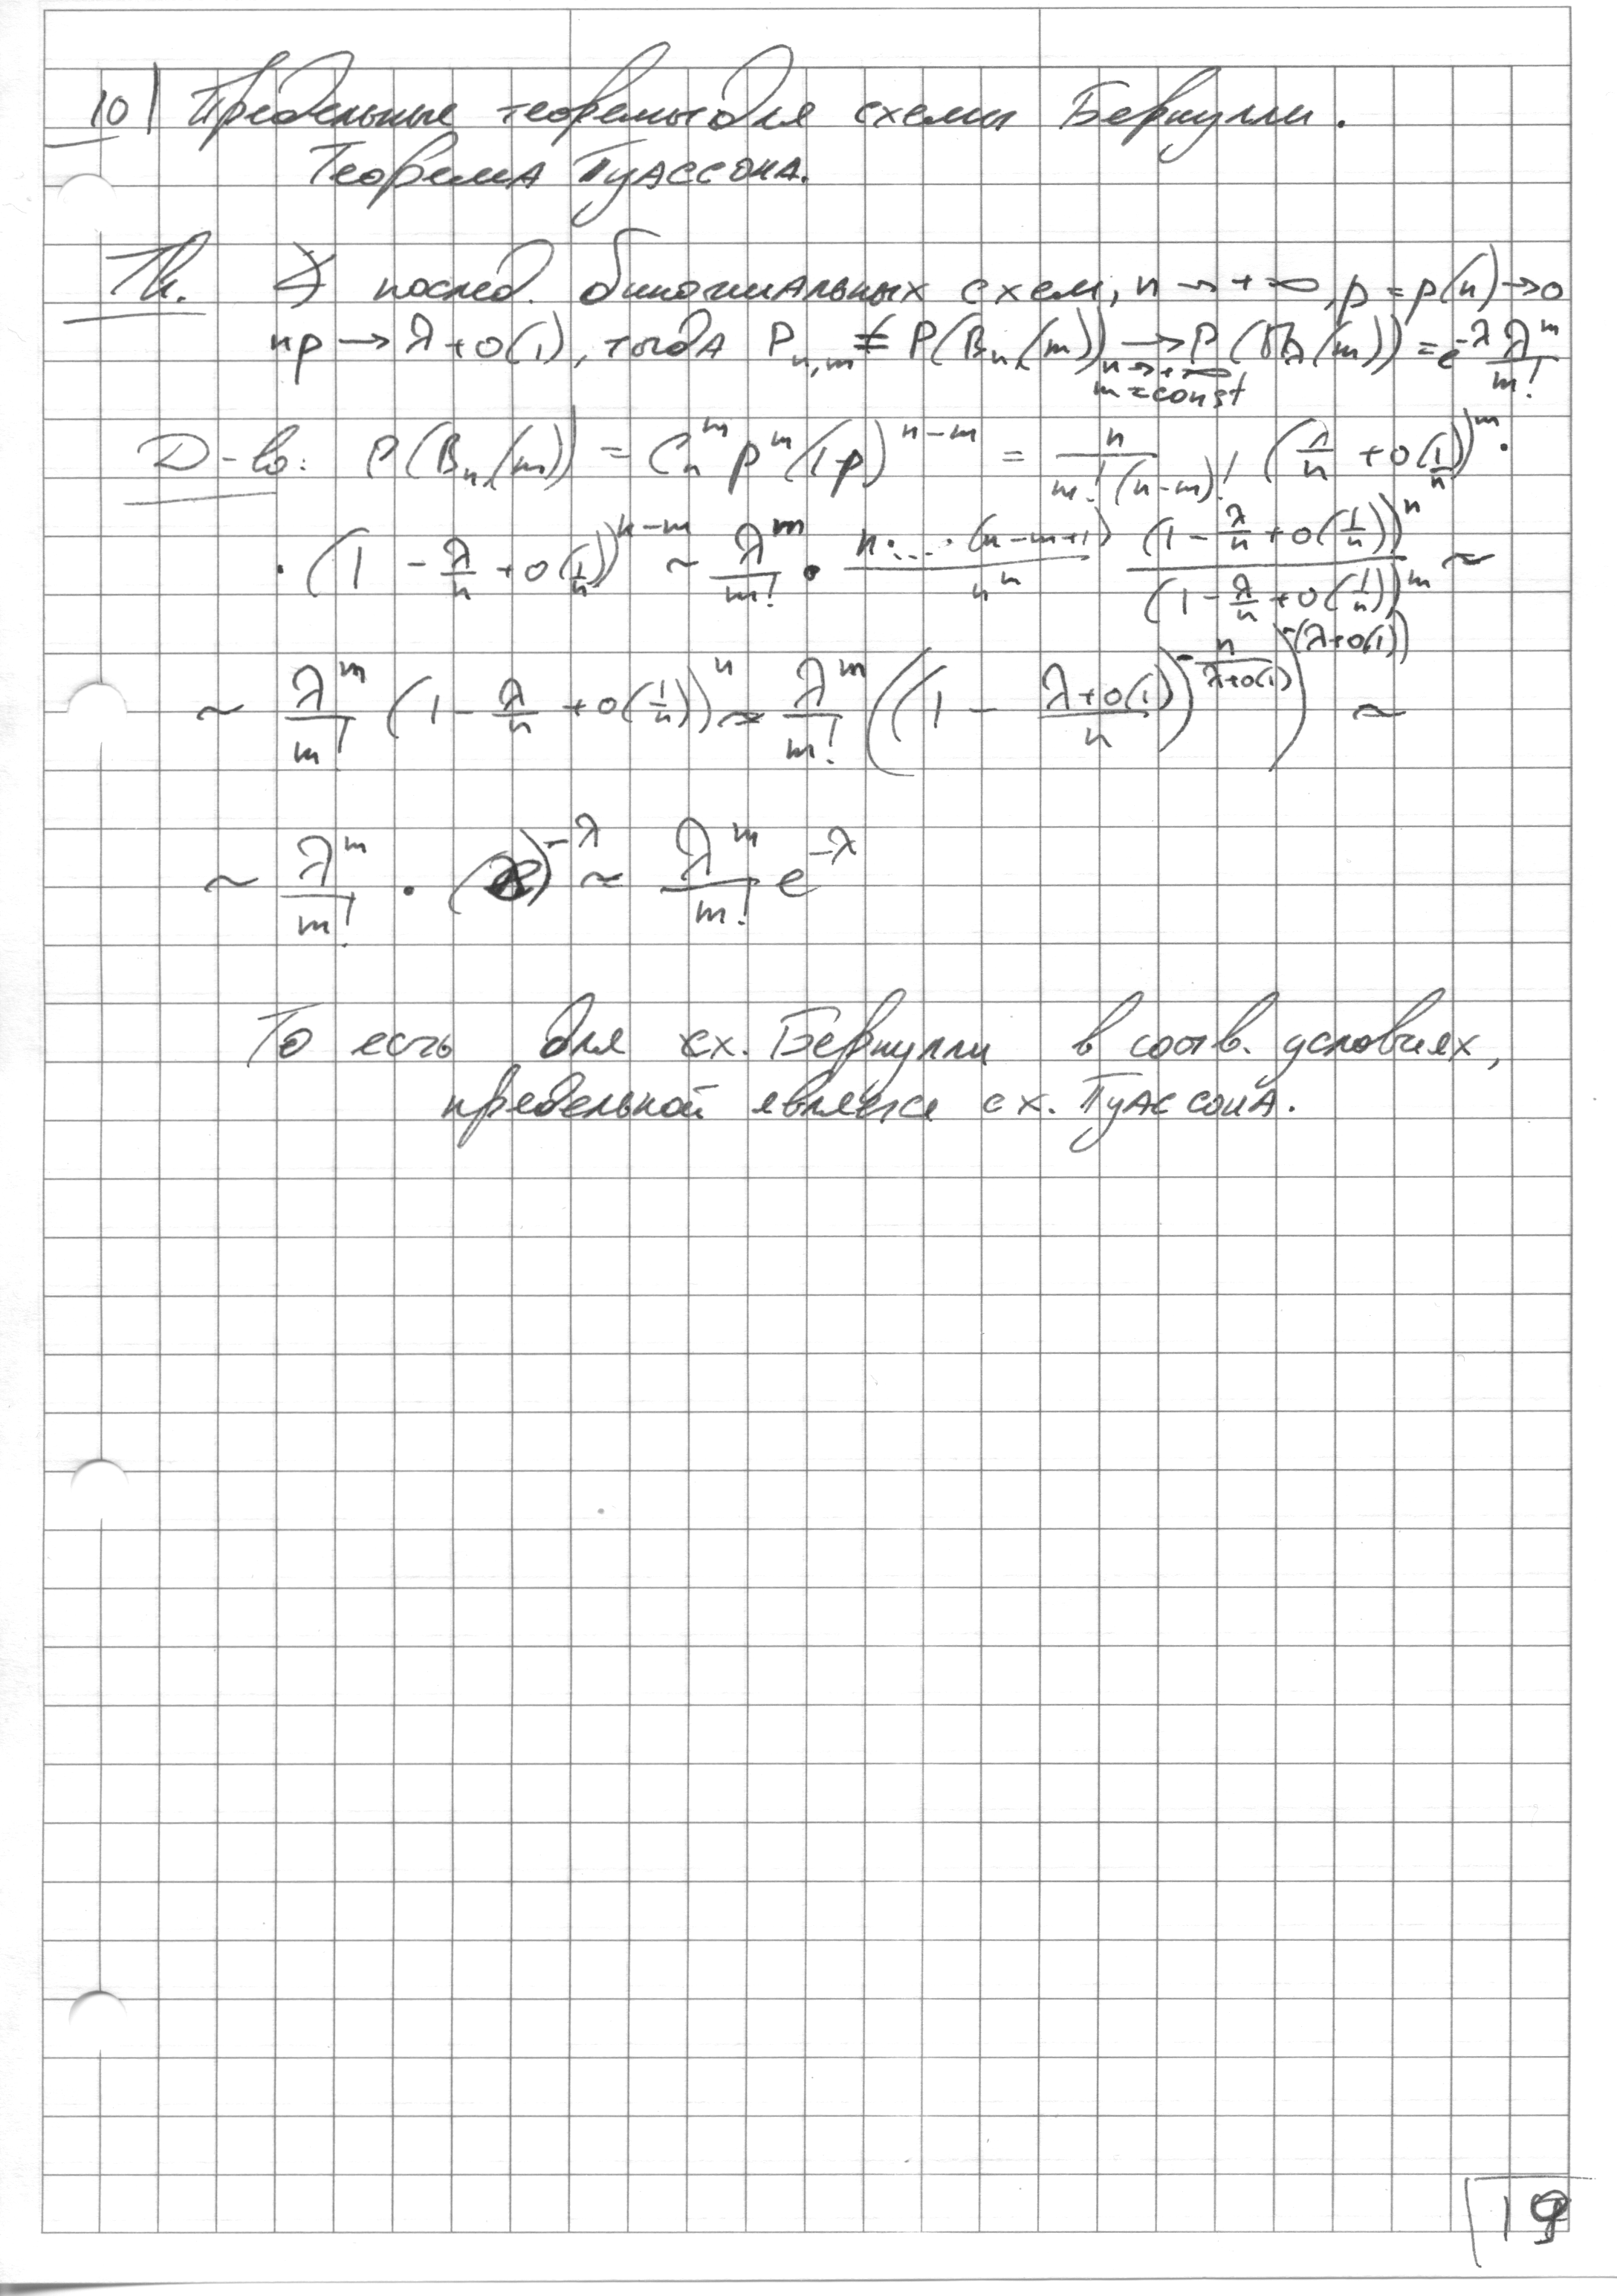 10) Предельные теоремы для схемы Бернулли.
Теорема Пуассона.
Th. ∀ послед. биномиальных схем, n → +∞, p = p(n) → 0
np → λ + o(1), тогда P_{n,m} = P(B_n(m)) →_{n→+∞, m=const} P(П_λ(m)) = e^{-λ} λ^m/m!
Д-во: P(B_n(m)) = C_n^m p^m (1-p)^{n-m} = n/(m!(n-m)!) (λ/n + o(1/n))^m ·
· (1 - λ/n + o(1/n))^{n-m} ~ λ^m/m! · n·...·(n-m+1)/n^n (1 - λ/n + o(1/n))^n/(1 - λ/n + o(1/n))^m ~
~ λ^m/m! (1 - λ/n + o(1/n))^n ~ λ^m/m! ((1 - (λ+o(1))/n)^{-n/(λ+o(1))})^{-(λ+o(1))} ~
~ λ^m/m! · (e)^{-λ} ~ λ^m/m! e^{-λ}
То есть для сх. Бернулли в соотв. условиях,
предельной является сх. Пуассона.
19